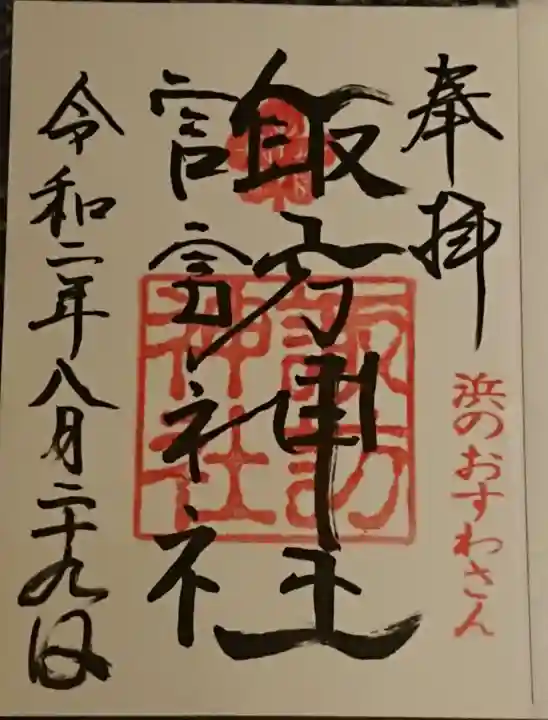 奉拝
浜のおすわさん
諏訪神社
諏訪
神社
令和二年八月二十九日